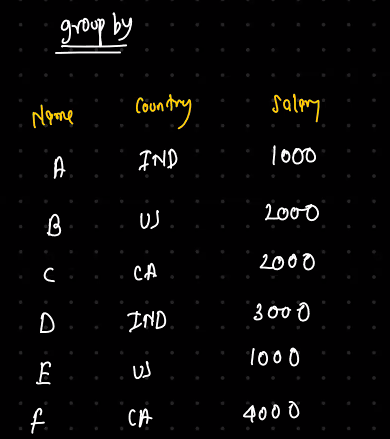 group by
Name Country Salary
A IND 1000
B US 2000
C CA 2000
D IND 3000
E US 1000
F CA 4000